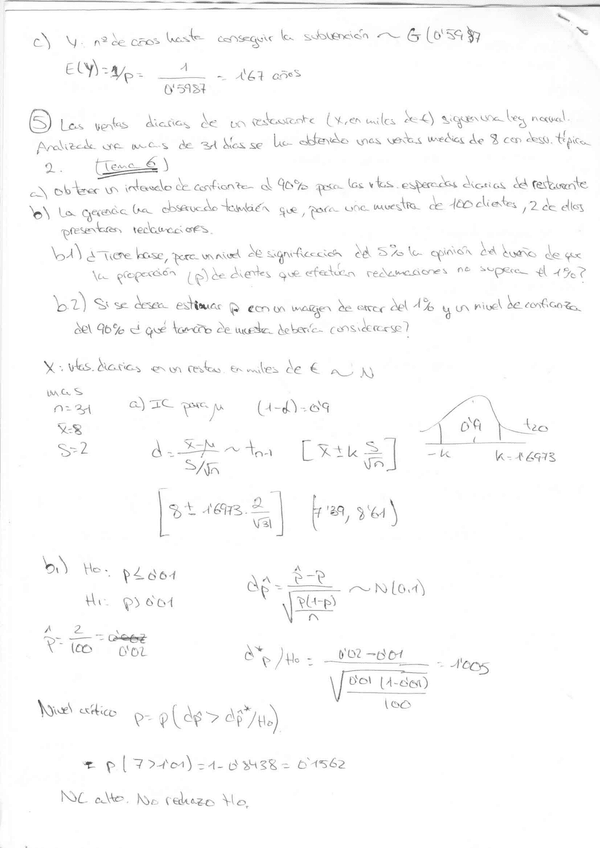 c) Y: nº de años hasta conseguir la subvención ~ G(0'5987
E(Y)=1/p= 1/0'5987 = 1'67 años
⑤ Las ventas diarias de un restaurante (x, en miles de €) siguen una ley normal.
Analizada una m.a.s de 31 días se ha obtenido unas ventas medias de 8 con desv. típica
2. (Tema 6)
a) Obtener un intervalo de confianza al 90% para las vtas. esperadas diarias del restaurante
b) La gerencia ha observado también que, para una muestra de 100 clientes, 2 de ellos
presentaron reclamaciones.
b1) ¿Tiene base, para un nivel de significación del 5% la opinión del dueño de que
la proporción (p) de clientes que efectúan reclamaciones no supera el 1%?
b2) Si se desea estimar p con un margen de error del 1% y un nivel de confianza
del 90% ¿qué tamaño de muestra debería considerarse?
X: vtas. diarias en un restau. en miles de € ~ N
m.a.s
n=31 a) IC para μ (1-α)=0'9
x̄=8
S=2 d = (x̄-μ)/(S/√n) ~ tn-1 [x̄ ± k S/√n] 0'9 t30
-k k=1'6973
[8 ± 1'6973 · 2/√31] (7'39, 8'61)
b1) Ho: p≤0'01 dp̂ = (p̂-p)/√(p(1-p)/n) ~ N(0,1)
H1: p>0'01
p̂ = 2/100 = 0'02
d*p/Ho = (0'02-0'01)/√(0'01(1-0'01)/100) = 1'005
Nivel crítico p=p(dp̂ > dp̂*/Ho)
= p(Z>1'01)=1-0'8438=0'1562
NC alto. No rechazo Ho.